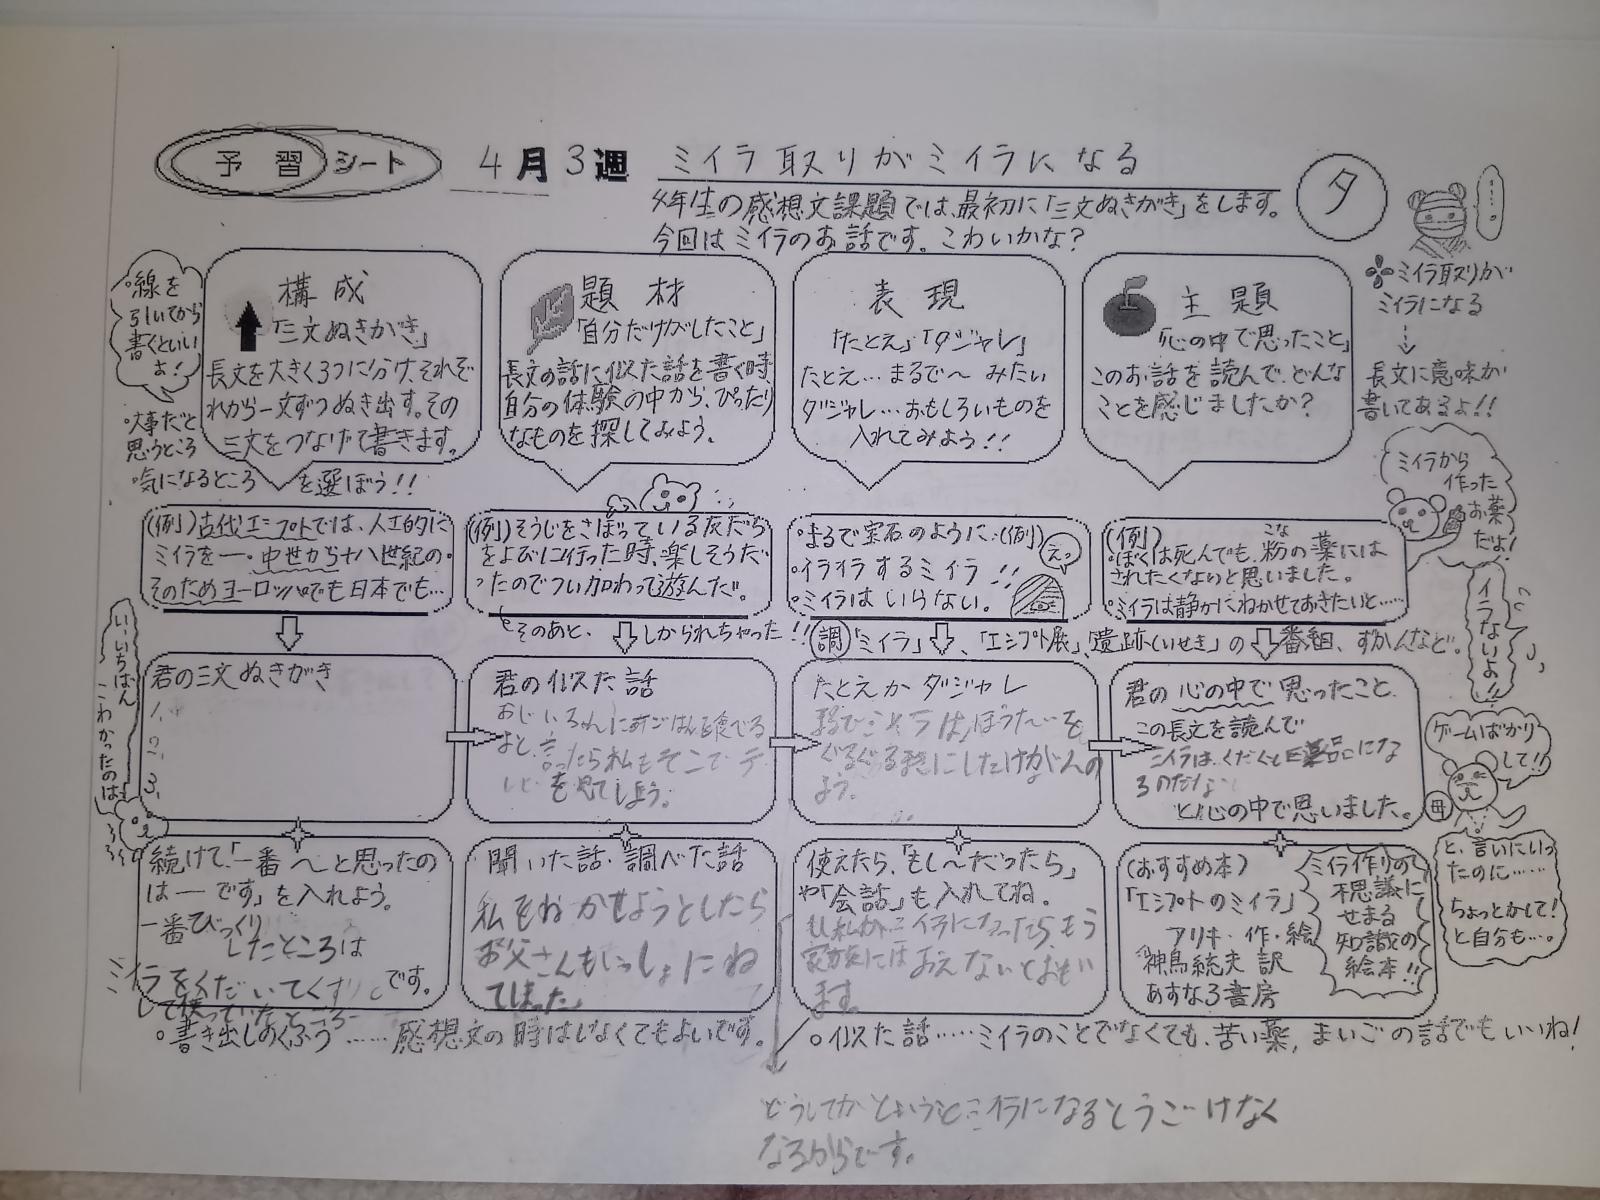 予習シート 4月3週 ミイラ取りがミイラになる
タ
4年生の感想文課題では、最初に「三文ぬきがき」をします。
今回はミイラのお話です。こわいかな?
線を
引いてから
書くといい
よ!
構成
「三文ぬきがき」
長文を大きく3つに分け、それぞ
れから一文ずつぬき出す。その
三文をつなげて書きます。
・大事だと
思うところ
・気になるところ を選ぼう!!
題材
「自分だけがしたこと」
長文の話に似た話を書く時、
自分の体験の中から、ぴったり
なものを探してみよう。
表現
「たとえ」「ダジャレ」
たとえ…まるで~みたい
ダジャレ…おもしろいものを
入れてみよう!!
主題
「心の中で思ったこと」
このお話を読んで、どんな
ことを感じましたか?
ミイラ取りが
ミイラになる
長文に意味が
書いてあるよ!!
ミイラから
作った
お薬
だよ!
(例)古代エジプトでは、人工的に
ミイラを一・中世から十八世紀の・
そのためヨーロッパでも日本でも…
(例)そうじをさぼっている友だち
をよびに行った時、楽しそうだ
ったのでつい加わって遊んだ。
そのあと、しかられちゃった!!
・まるで宝石のように…(例)
・イライラするミイラ!!
・ミイラはいらない。
えっ
(例)
・ぼくは死んでも、粉の薬には
こな
されたくないと思いました。
・ミイラは静かにねかせておきたいと……
調「ミイラ」、「エジプト展」、「遺跡(いせき)」の番組、ずかんなど。
イラないよ!!
い、いちばん
こわかったのは
君の三文ぬきがき
1.
2.
3.
君の似た話
おじいちゃんに
よと、言ったら私もそこでテ
を見てしまう。
たとえかダジャレ
ぐるぐる巻きにしたけが人の
よう。
君の心の中で思ったこと
この長文を読んで
ミイラは、くだくと医薬品にな
るのだな
と心の中で思いました。
ゲームばかり
して!!
母
と、言いにいっ
たのに……
ちょっとかして!
と自分も…。
続けて、「一番~と思ったの
は一です」を入れよう。
一番びっくり
したところは
ミイラをくだいてくすりと
して使っていたところ
です。
聞いた話・調べた話
私をねかせようとしたら
お父さんもいっしょにね
てしまった。
使えたら、「もし~だったら」
や「会話」も入れてね。
もし私が、ミイラになったら、もう
家族にはあえないとおもい
ます。
(おすすめ本)
「エジプトのミイラ」
アリキ・作・絵
神鳥統夫 訳
あすなろ書房
ミイラ作りの
不思議に
せまる
知識の
絵本!!
・書き出しのくふう……感想文の時はしなくてもよいです。
・似た話……ミイラのことでなくても、苦い薬、まいごの話でもいいね!
どうしてかというとミイラになるとうごけなく
なるからです。